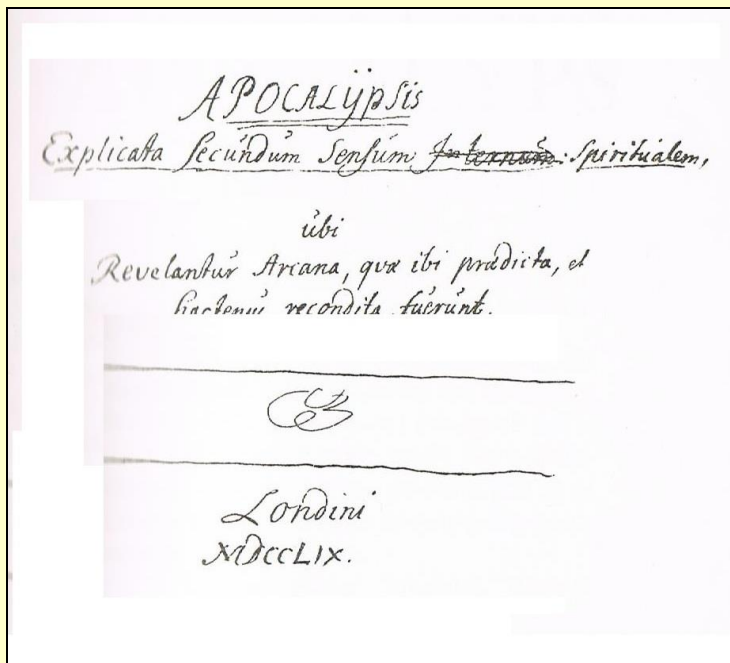 APOCALYPSIS
Explicata secundum Sensum Internum: Spiritualem,
ubi
Revelantur Arcana, quæ ibi prædicta, et
hactenus recondita fuerunt.
Londini
MDCCLIX.